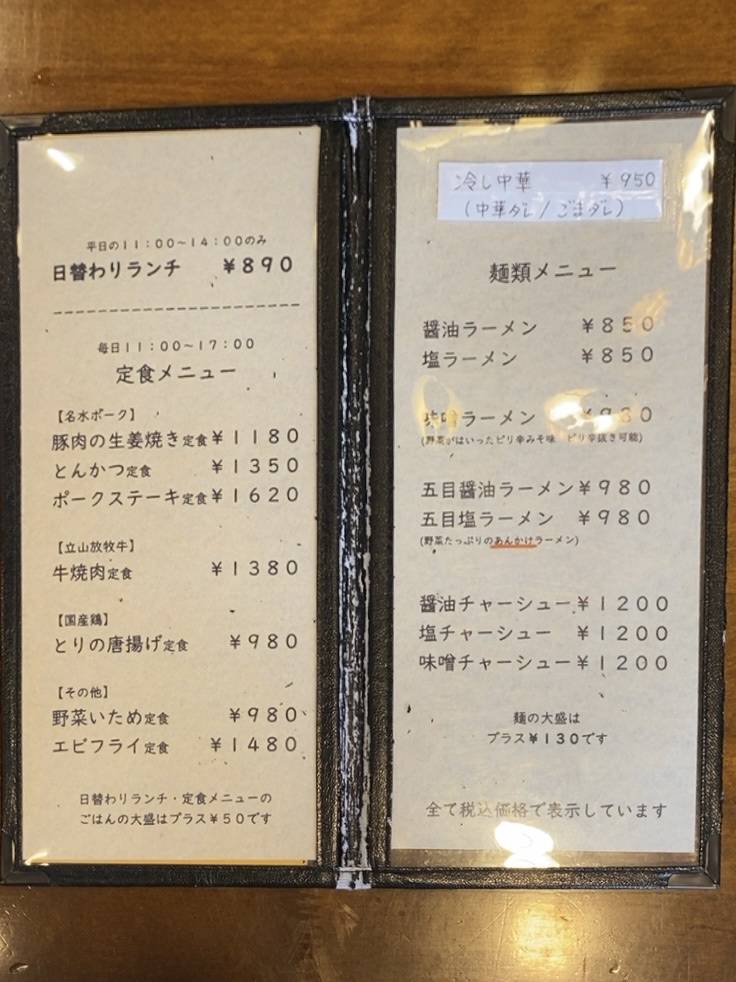 平日の11:00～14:00のみ
日替わりランチ ￥890
毎日11:00～17:00
定食メニュー
【名水ポーク】
豚肉の生姜焼き定食￥1180
とんかつ定食 ￥1350
ポークステーキ定食￥1620
【立山放牧牛】
牛焼肉定食 ￥1380
【国産鶏】
とりの唐揚げ定食 ￥980
【その他】
野菜いため定食 ￥980
エビフライ定食 ￥1480
日替わりランチ・定食メニューの
ごはんの大盛はプラス￥50です
冷し中華 ￥950
(中華ダレ/ごまダレ)
麺類メニュー
醤油ラーメン ￥850
塩ラーメン ￥850
味噌ラーメン
(野菜がはいったピリ辛みそ味 ピリ辛抜き可能)
五目醤油ラーメン￥980
五目塩ラーメン ￥980
(野菜たっぷりのあんかけラーメン)
醤油チャーシュー￥1200
塩チャーシュー ￥1200
味噌チャーシュー￥1200
麺の大盛は
プラス￥130です
全て税込価格で表示しています